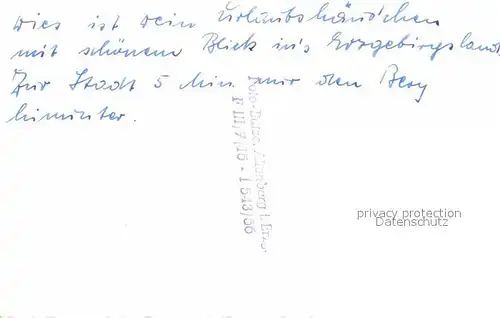 Dies ist dein Urlaubshäuschen
mit schönem Blick in's Erzgebirgsland.
Zur Stadt 5 Min. nur den Berg
hinunter.
Altenberg i. Erzg.
F III/9/16 - 1 543/56
privacy protection
Datenschutz